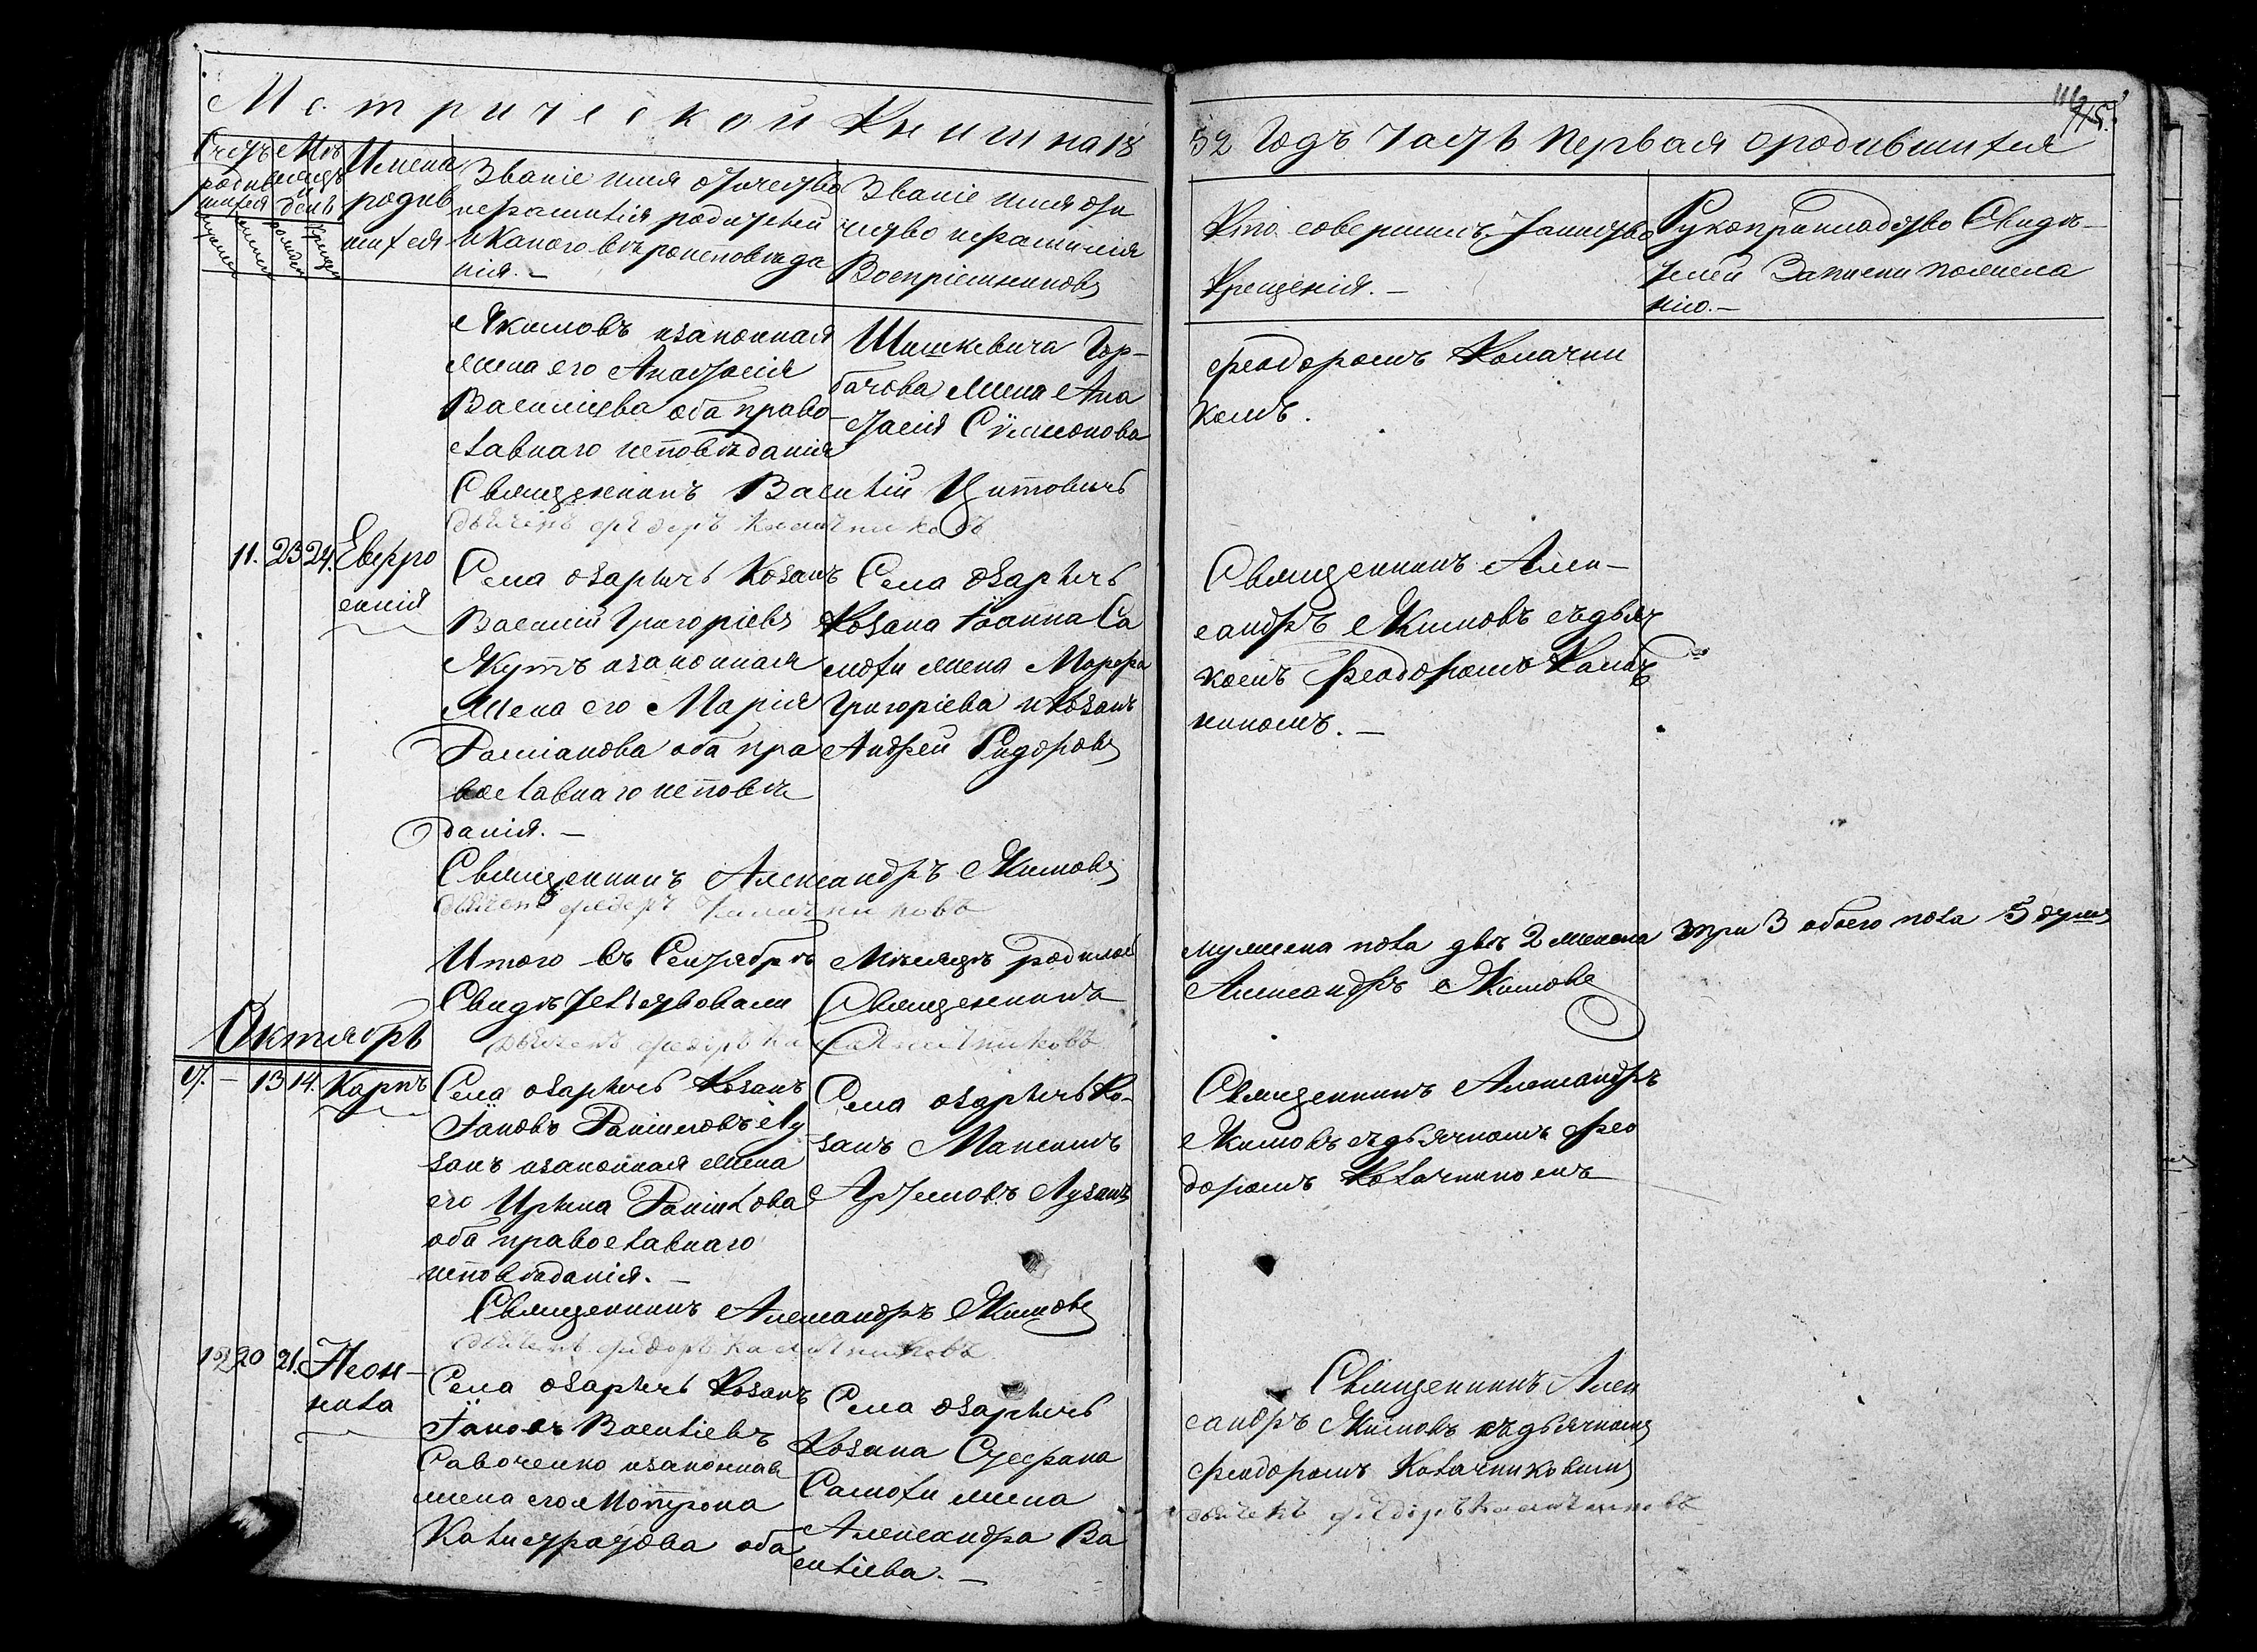 Метрической Книги на 18
52 Годъ Часть Первая о родившихся
115.
Счетъ родив
шихся
Мѣ
сяцъ
и
день
Имена
родив
шихся
Званіе имя отчество
и фамилія родителей
и какого вѣроисповѣда
нія. —
Званіе имя оте
чество и фамилія
Воспріемниковъ
Кто совершилъ таинство
Крещенія. —
Рукоприкладство Свидѣ-
телей Записи по желa
нію. —
Якимовъ и законная
жена его Анастасія
Васильева оба право
славнаго исповѣданія
Шишкевича Гор-
бачова жена Ана
стасія Сѵмионова
Феодоромъ Калачни
комъ.
Священникъ Василій Цитовичъ
дьячекъ федоръ Калачниковъ
11. 23 24. Евфро
синія
Села Озаричъ Козакъ
Василій Григоріевъ
Якутъ и законная
жена его Марія
Даміанова оба пра
вославнаго исповѣ
данія. —
Села Озаричъ
Козака Іоанна Са
мохи жена Марфа
Григоріева и Козакъ
Андрей Сидоровъ
Священникъ Алек-
сандръ Якимовъ съ дьяч
комъ Феодоромъ Калач
никомъ. —
Священникъ Александръ Якимовъ
дьячекъ федоръ Калачниковъ
Итого въ Сентябрѣ Мѣсяцѣ родилось
мужеска пола два 2 женска три 3 обоего пола 5 душъ
Свидѣтельствовали Священникъ
Александръ Якимовъ
дьячекъ федоръ Калачниковъ
Октябрь
9. — 13 14. Карпъ
Села Озаричъ Козакъ
Іаковъ Даніиловъ Лу
занъ и законная жена
его Ирина Даніилова
оба православнаго
исповѣданія. —
Села Озаричъ Ко-
закъ Максимъ
Артемовъ Лузанъ
Священникъ Александръ
Якимовъ съ дьячкомъ Фео
доромъ Калачникомъ
Священникъ Александръ Якимовъ
дьячекъ федоръ Калачниковъ
12 20 21. Неон-
нила
Села Озаричъ Козакъ
Іаковъ Васильевъ
Савоченко и законная
жена его Мотрона
Калистратова оба
Села Озаричъ
Козака Стефана
Самохи жена
Александра Ва
сильева. —
Священникъ Алек
сандръ Якимовъ съ дьячкомъ
Феодоромъ Калачниковымъ
дьячекъ федоръ Калачниковъ